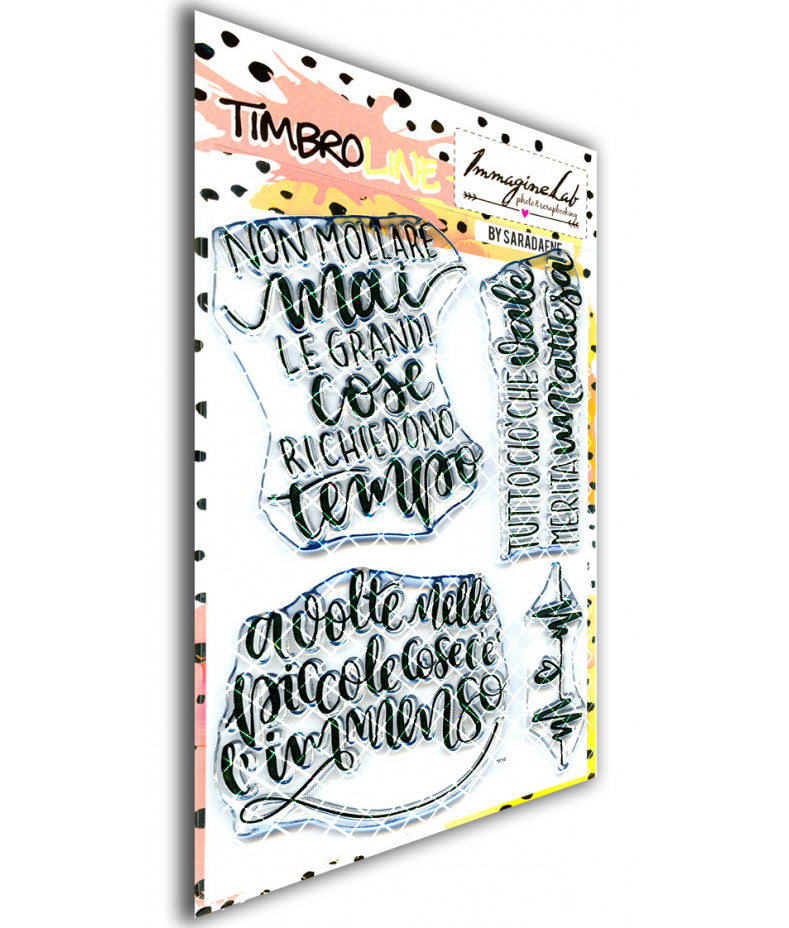 TIMBROLINE
ImmagineLab
photo & scrapbooking
BY SARADAENE
NON MOLLARE
mai
LE GRANDI
cose
RICHIEDONO
tempo
TUTTO CIÒ CHE vale
MERITA un'attesa
a volte nelle
piccole cose c'è
l'immenso